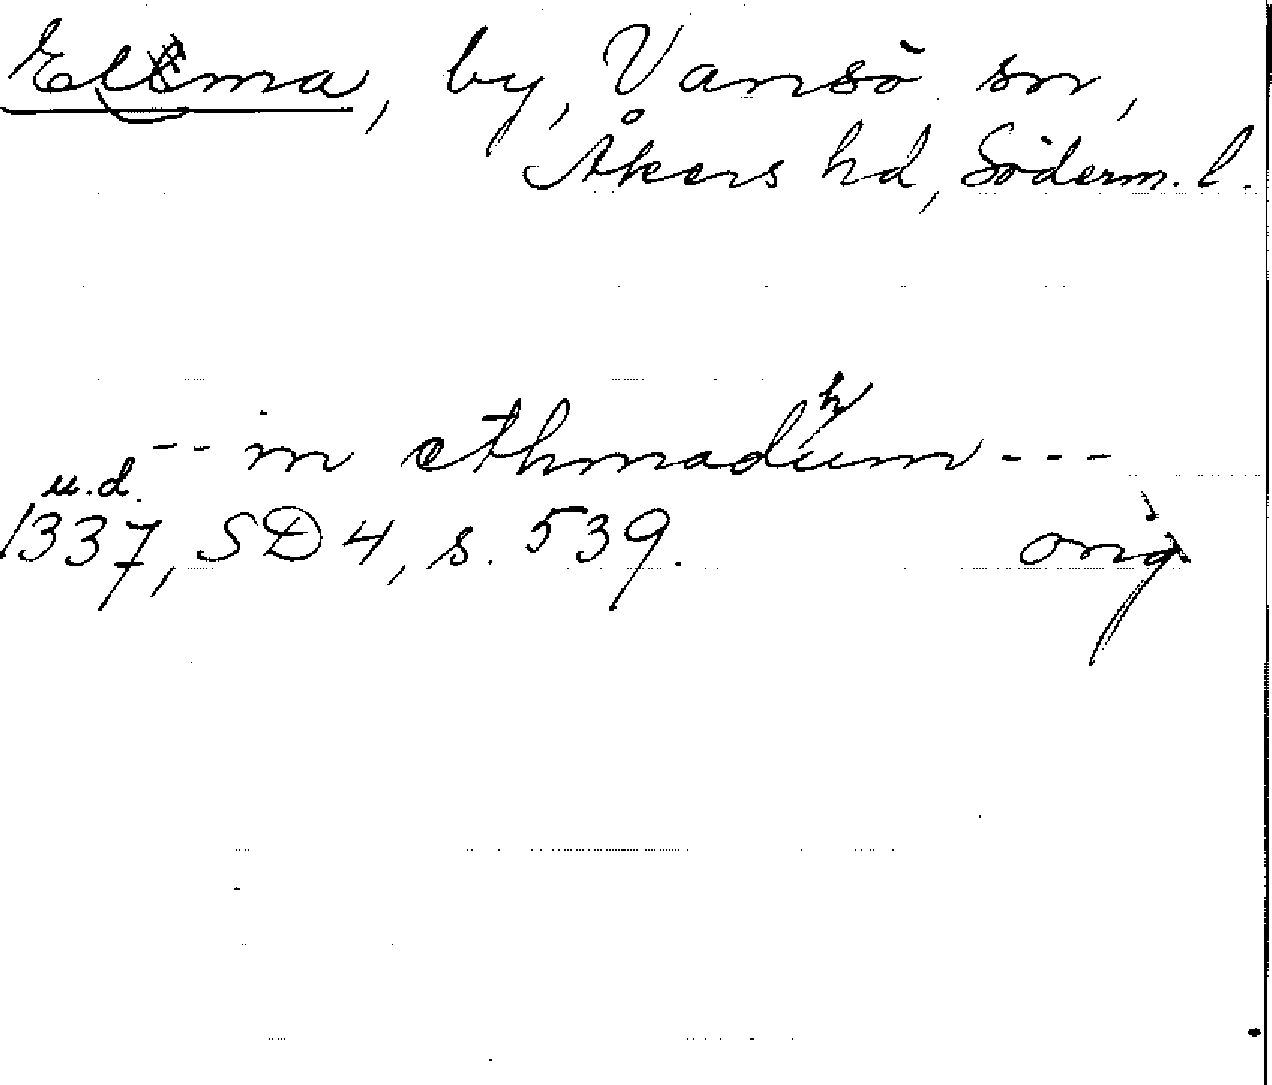 Elma, by, Vansö sn,
Åkers hd, Söderm. l.
-- in ethmadhum ---
u.d.
1337, SD 4, s. 539. orig